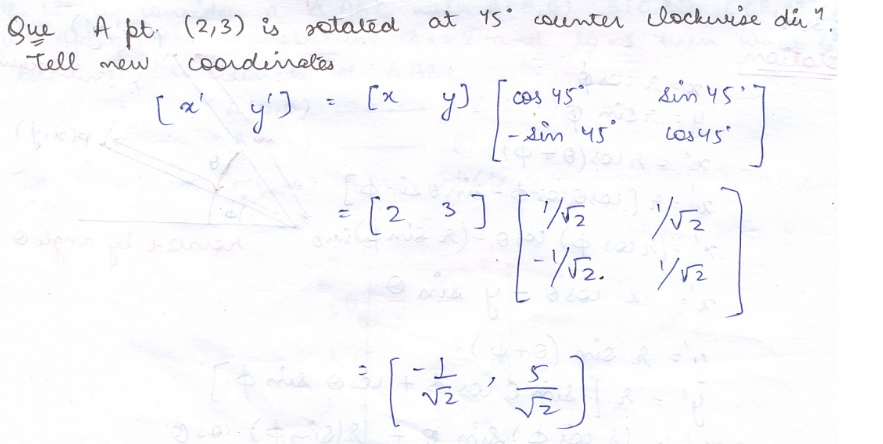 Que A pt. (2,3) is rotated at 45° counter clockwise dirⁿ.
Tell new coordinates
[x' y'] = [x y] [cos 45° sin 45°
-sin 45° cos 45°]
= [2 3] [1/√2 1/√2
-1/√2. 1/√2]
= [-1/√2 , 5/√2]